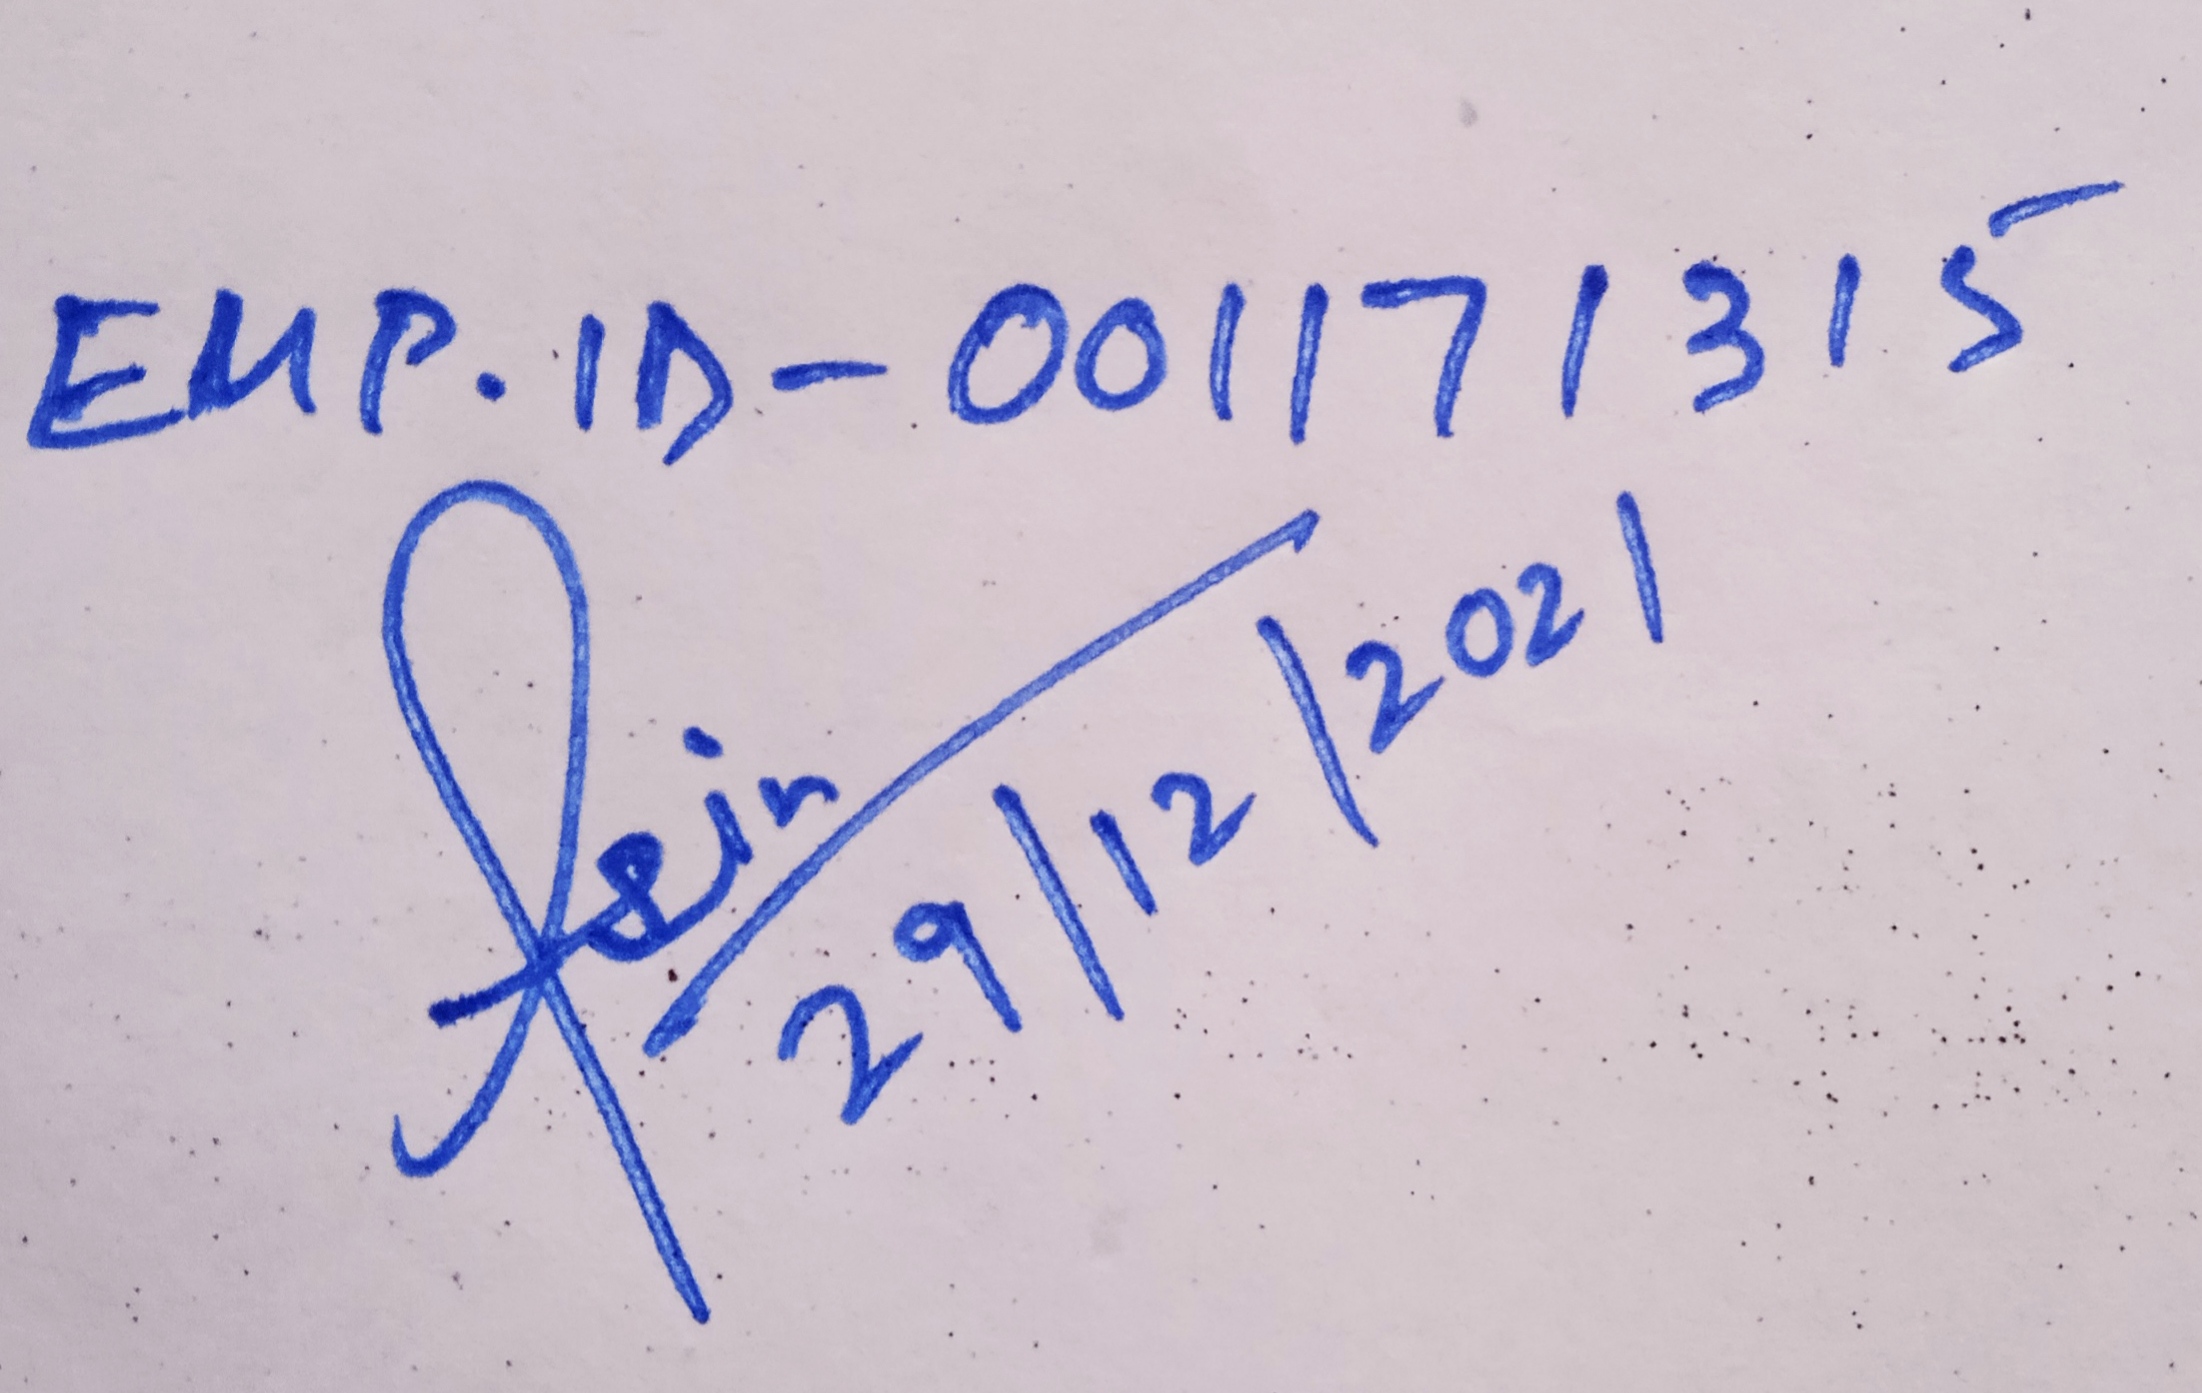 EMP. ID - 001171315
Asin
29/12/2021